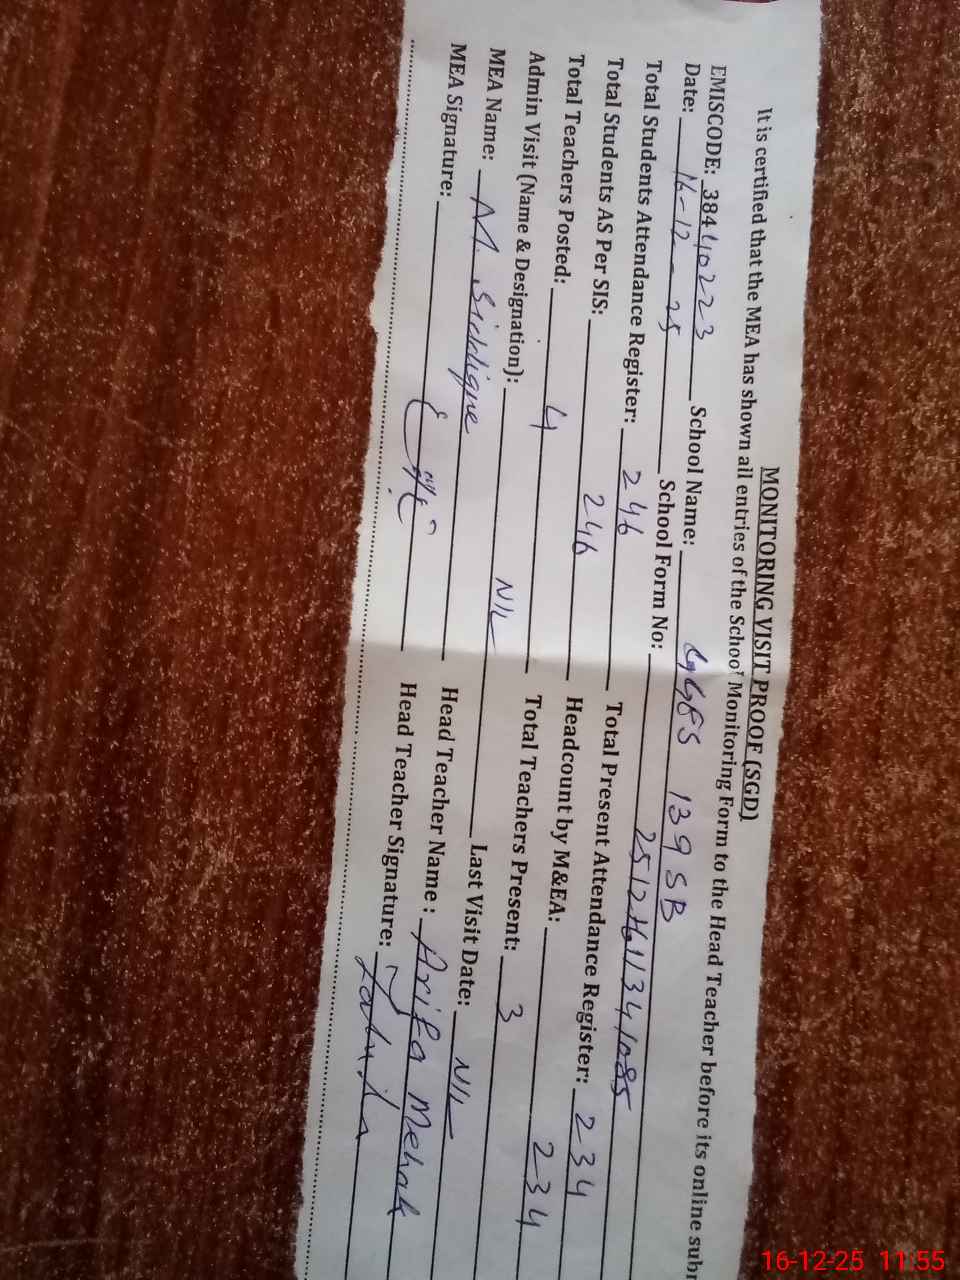 MONITORING VISIT PROOF (SGD)
It is certified that the MEA has shown all entries of the School Monitoring Form to the Head Teacher before its online subr
EMISCODE: 38440223 School Name: GGES 139 SB
Date: 16-12-25 School Form No:
Total Students Attendance Register: 246 Total Present Attendance Register: 234
Total Students AS Per SIS: 246 Headcount by M&EA: 234
Total Teachers Posted: 4 Total Teachers Present: 3
Admin Visit (Name & Designation): NIL Last Visit Date: NIL
MEA Name: M. Siddique Head Teacher Name: Arifa Mehak
MEA Signature: Head Teacher Signature:
16-12-25 11:55